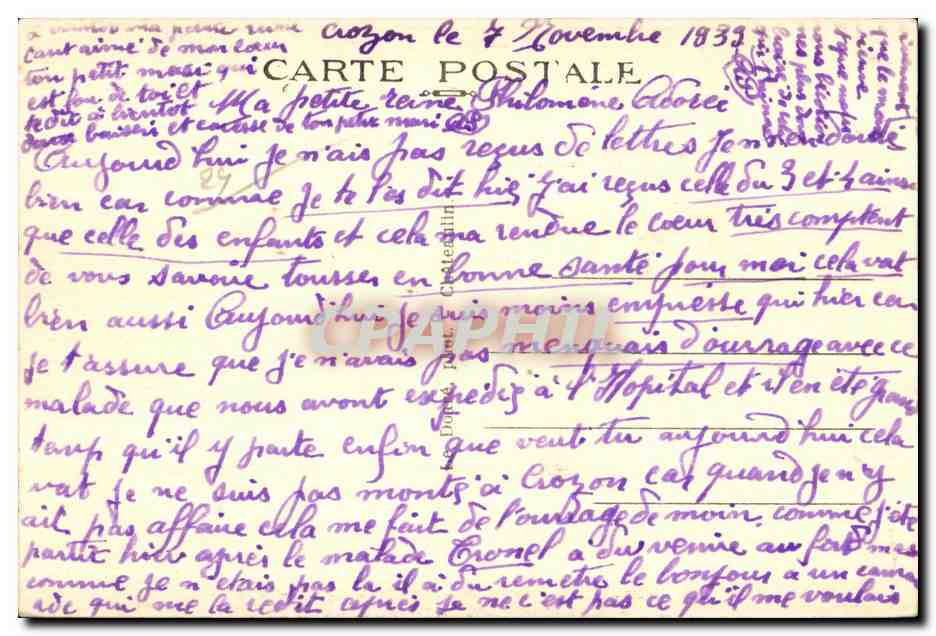 Crozon le 7 Novembre 1939
CARTE POSTALE
Ma petite reine Philomène Adorée
Aujourd'hui je n'ais pas reçus de lettres je m'en doutai
bien car comme je te l'es dit hié j'ai reçus celle du 3 et 4 ainsi
que celle des enfants et cela ma rendue le cœur très comptent
de vous savoir tousses en bonne santé pour moi cela vat
bien aussi Aujourd'hui je suis moins empressé qui hier car
je t'assure que je n'avais pas menquais d'ourrage avec ce
malade que nous avont expédié à l'Hopital et il en été grans
tanp qu'il y parte enfin que veut tu aujourd'hui cela
vat je ne suis pas monté à Crozon car quand je n'y
ait pas affaire cela me fait de l'ourrage de moin, comme j'été
partit hier après le malade Tronel a du venir au fort mes
comme je n'étais pas la il à du remetre le bonjour a un cama
rade qui me la redit après je ne c'est pas ce qu'il me voulais
a ma petite reine
tant aimé de mon cœur
ton petit mari qui
est fou de toi et
te dit à bientot
doux baisers et caresse de ton petit mari
Le Doaré, phot. Châteaulin
CPAPHIL